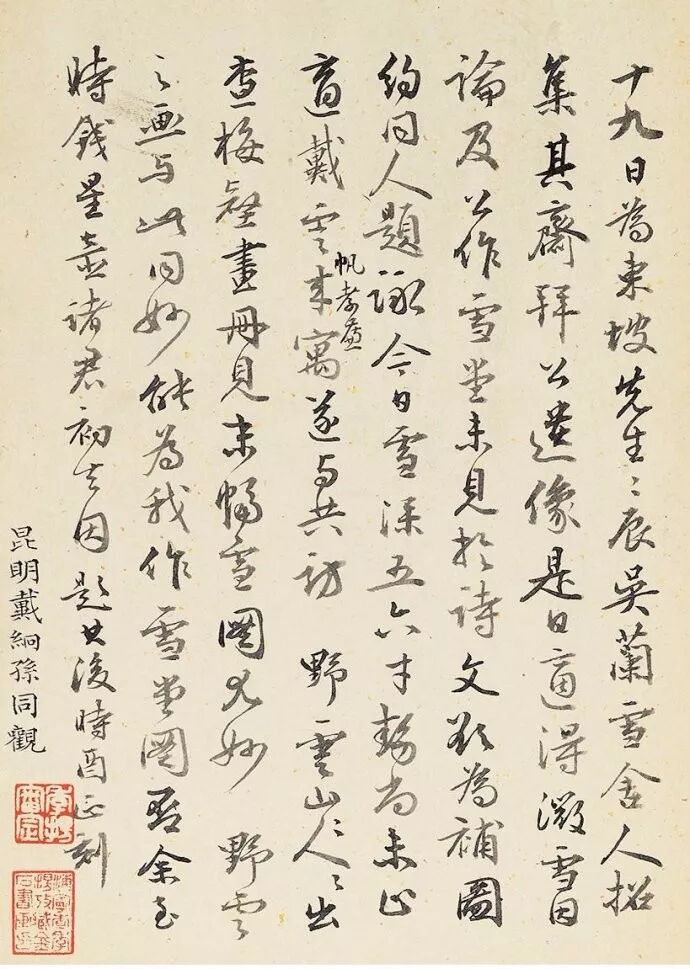 十九日為東坡先生〻辰吳蘭雪舍人招
集其齋拜公遺像是日適得微雪因
論及公作雪堂未見於詩文欲為補圖
約同人題詠今日雪深五六寸勢尚未止
適戴雲帆孝廉來寓遂与共訪野雲山人〻出
查梅壑畫冊見末幅雪圖尤妙野雲
之画与此同妙能為我作雪堂圖否余至
時錢星壺諸君初去因題其後時酉正刻
昆明戴絅孫同觀